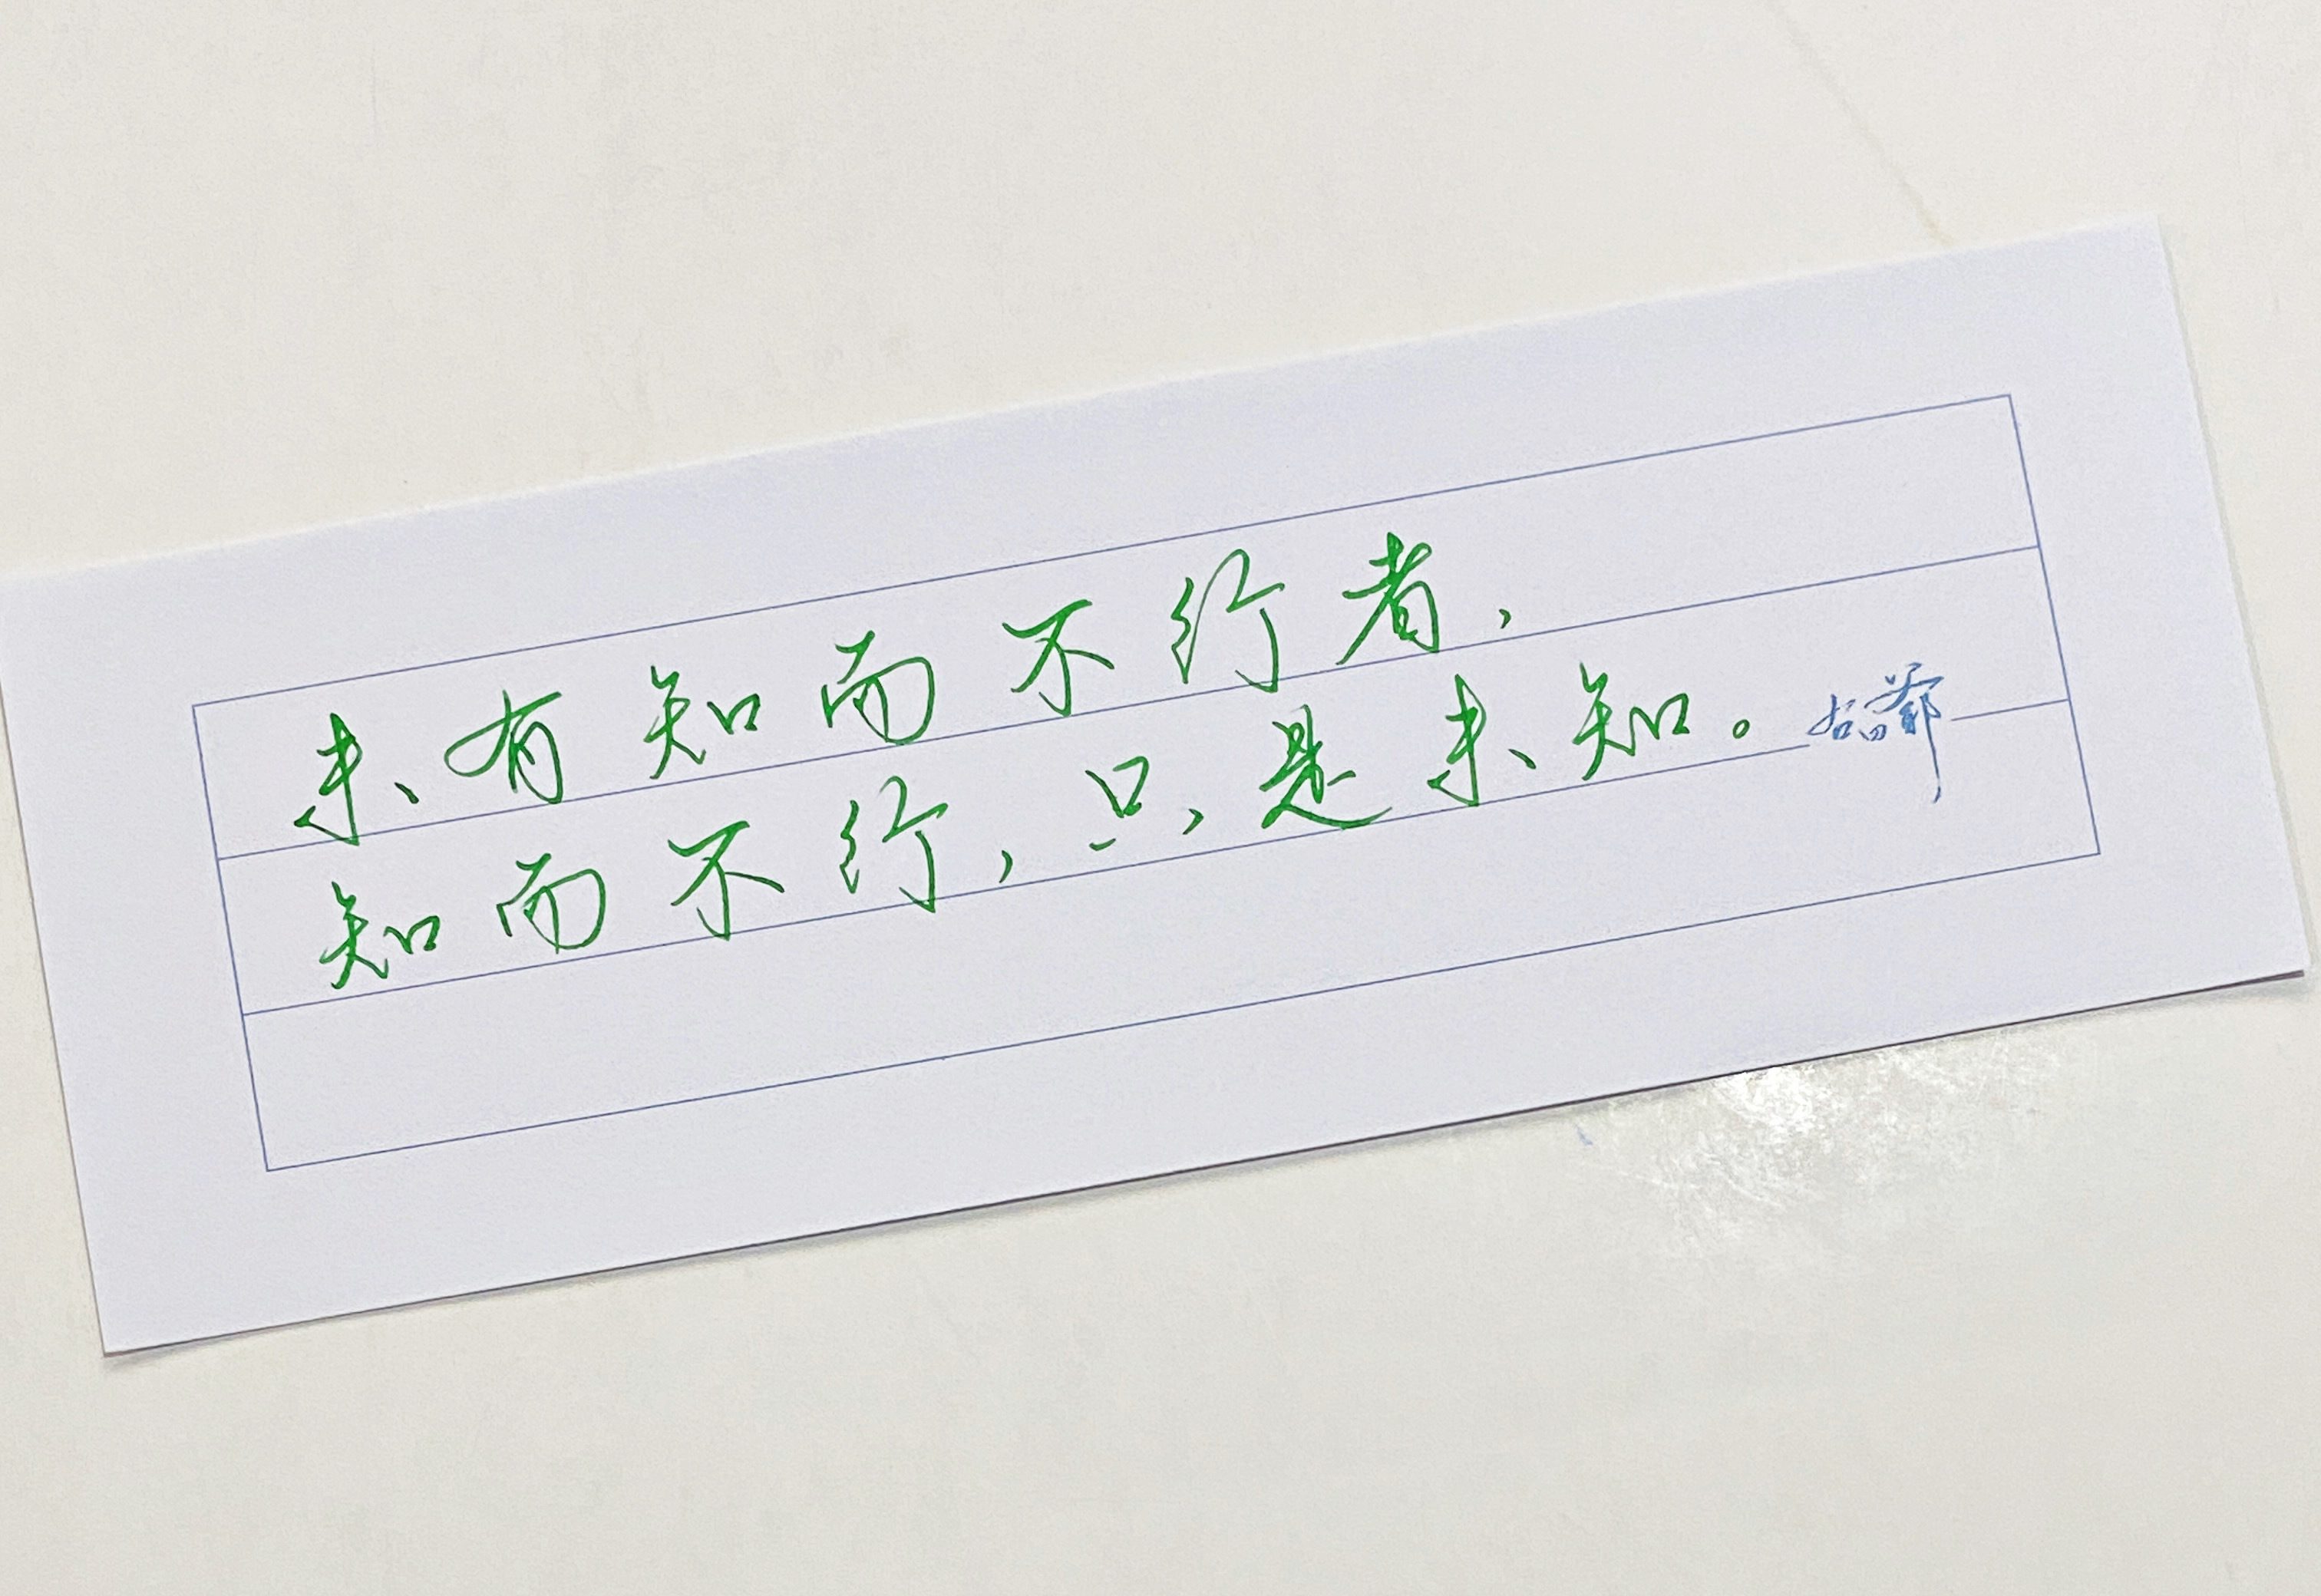 未有知而不行者，
知而不行，只是未知。